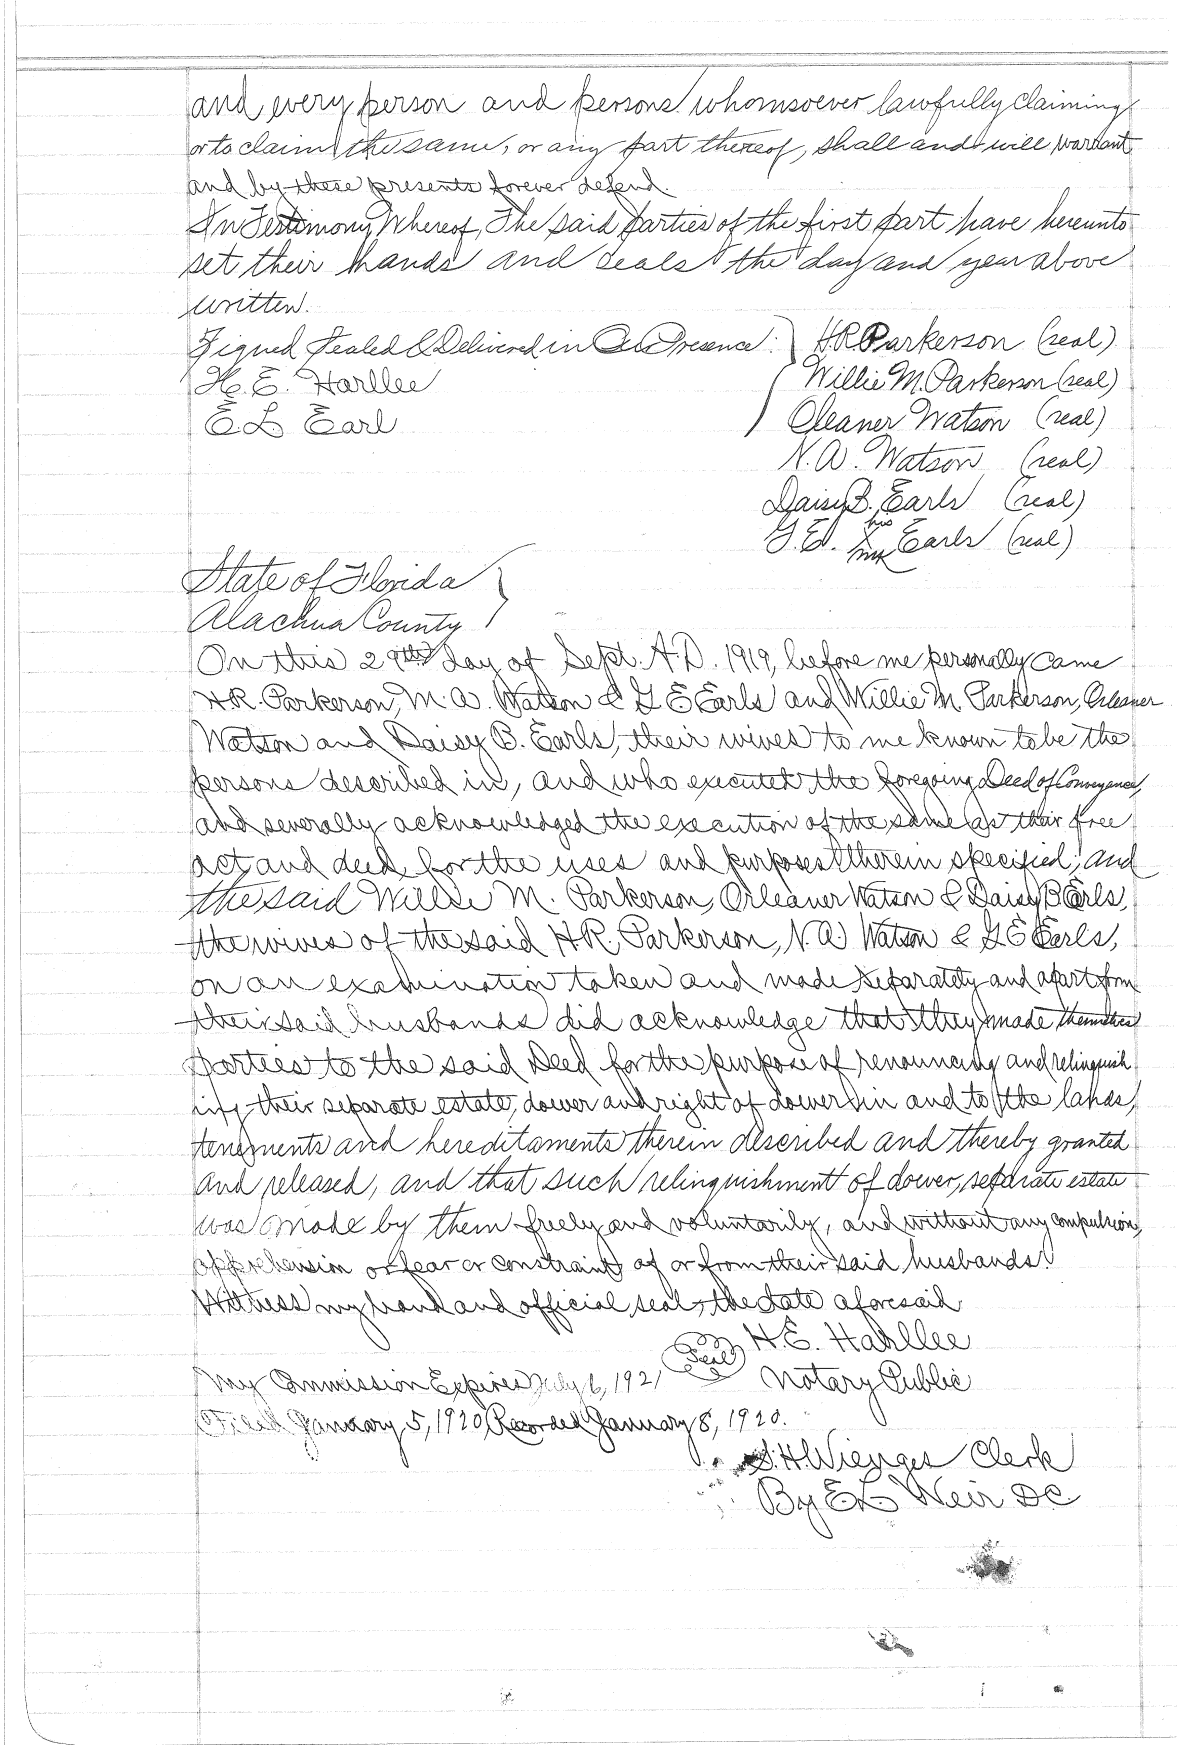 and every person and persons whomsoever lawfully claiming
or to claim the same, or any part thereof, shall and will warrant
and by these presents forever defend.
In Testimony Whereof, The said parties of the first part have hereunto
set their hands and seals the day and year above
written.
Signed Sealed & Delivered in Our Presence: } H.R. Parkerson (seal)
H. E. Harllee Willie M. Parkerson (seal)
E L Earl Oleaner Watson (seal)
N. A. Watson (seal)
Daisy B. Earls (seal)
G. E. his X mk Earls (seal)
State of Florida }
Alachua County
On this 29th day of Sept. A.D. 1919, before me personally came
H.R. Parkerson, M. A. Watson & G E Earls and Willie M. Parkerson, Orleaner
Watson and Daisy B. Earls, their wives to me known to be the
persons described in, and who executed the foregoing Deed of Conveyance,
and severally acknowledged the execution of the same as their free
act and deed for the uses and purposes therein specified; and
the said Willie M. Parkerson, Orleaner Watson & Daisy B Earls,
the wives of the said H R. Parkerson, N. A. Watson & G E Earls,
on an examination taken and made separately and apart from
their said husbands did acknowledge that they made themselves
parties to the said Deed for the purpose of renouncing and relinquish
ing their separate estate, dower and right of dower in and to the lands,
tenements and hereditaments therein described and thereby granted
and released, and that such relinquishment of dower, separate estate
was made by them freely and voluntarily, and without any compulsion,
apprehension or fear or constraint of or from their said husbands.
Witness my hand and official seal, the date aforesaid
H. E. Hahllee
My Commission Expires July 6, 1921 (Seal) Notary Public
Filed January 5, 1920, Recorded January 8, 1920.
S. H. Wienges Clerk
By E L Weir DC